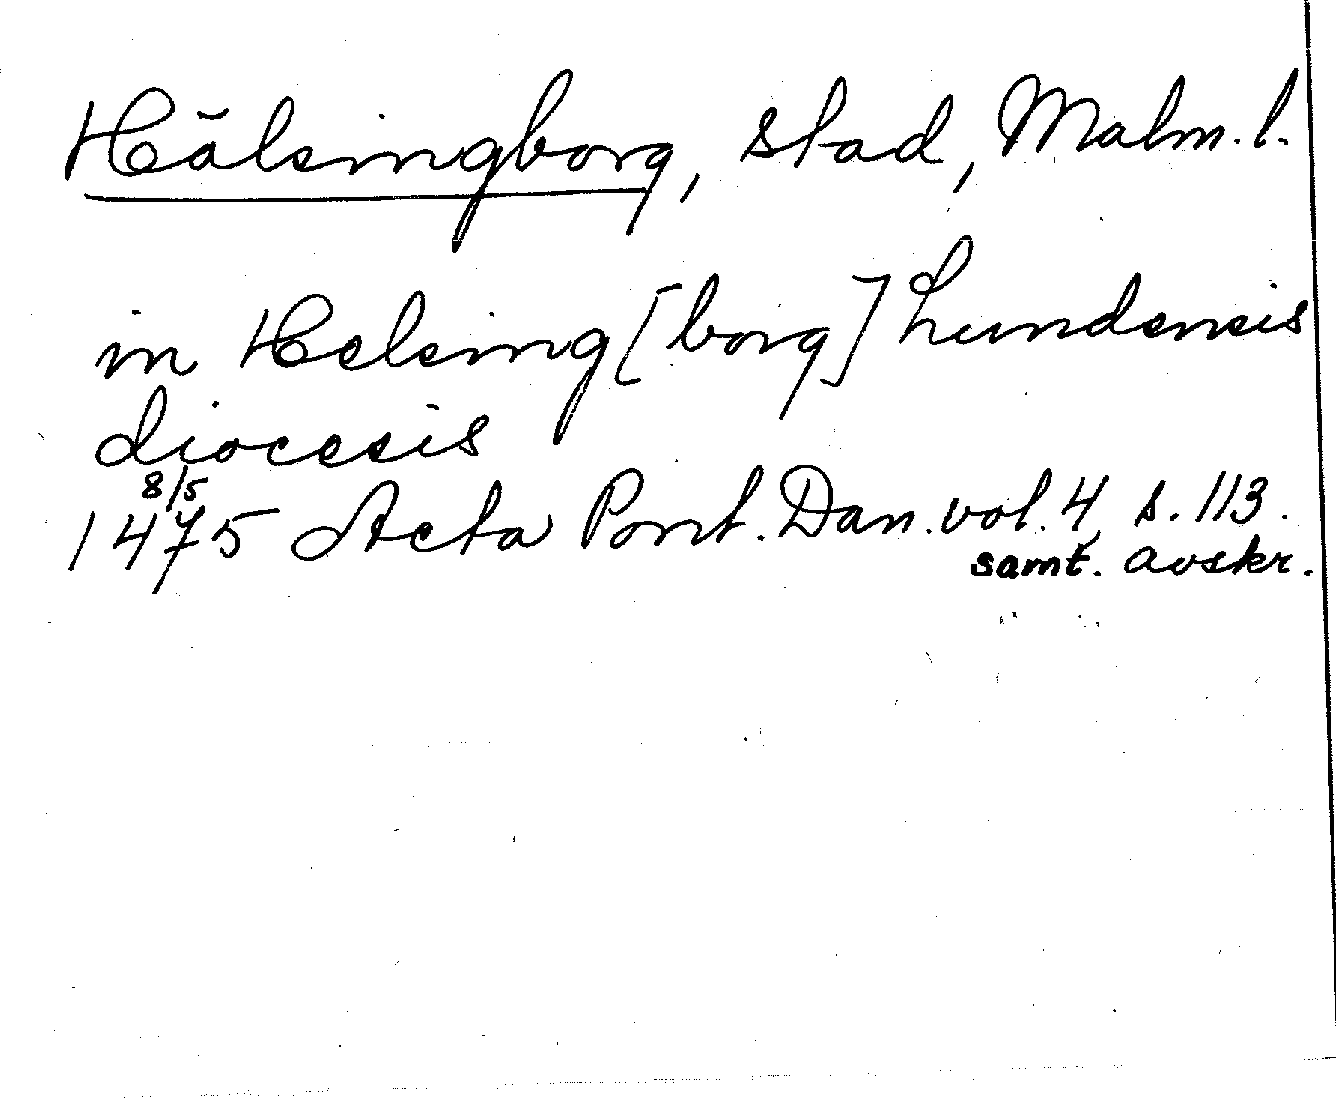 Hälsingborg, stad, Malm. l.
in Helsing [borg] Lundensis
diocesis
8/5
1475 Acta Pont. Dan. vol. 4, s. 113.
samt. avskr.